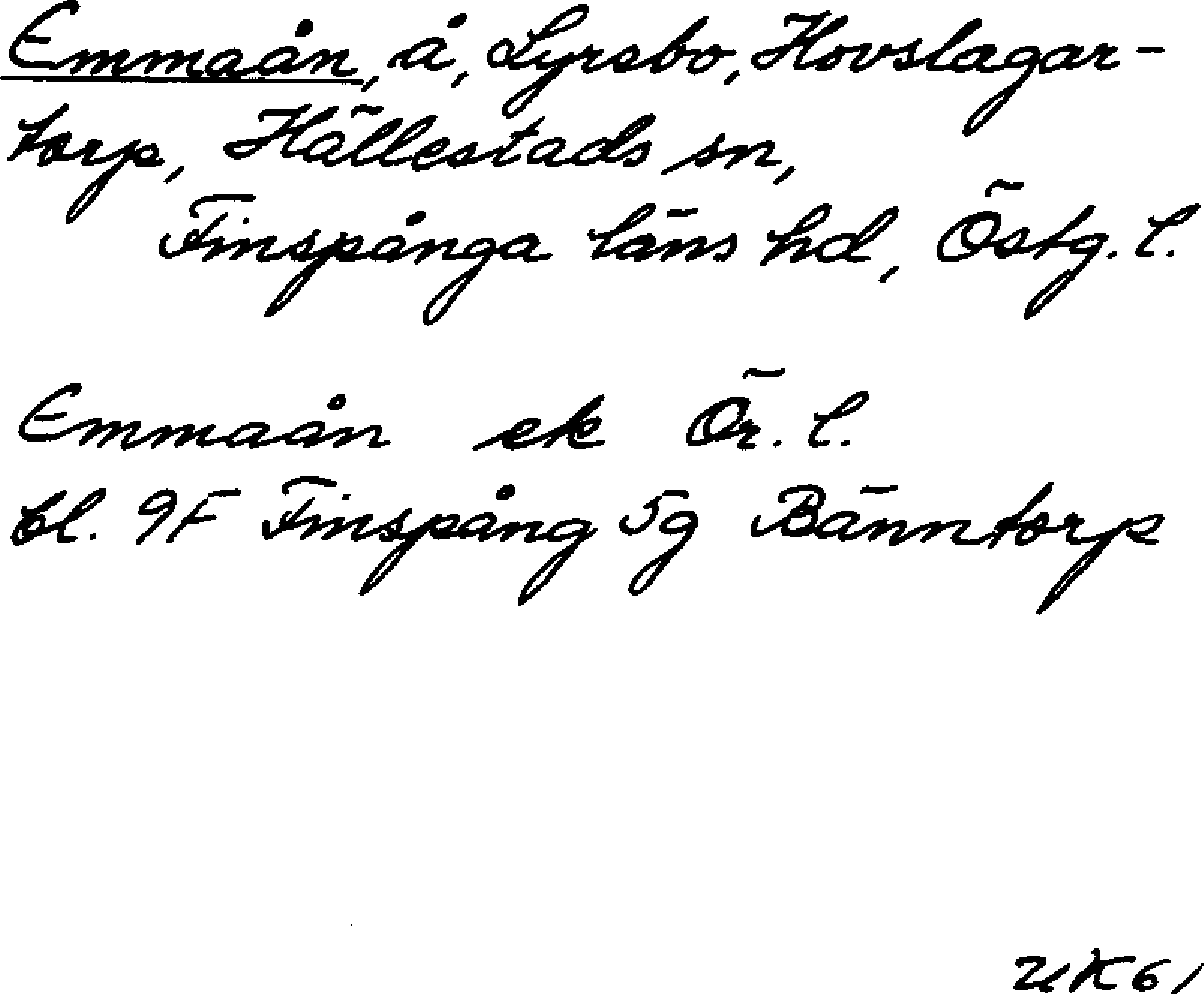 Emmaån, å, Lyrsbo, Hovslagar-
torp, Hällestads sn,
Finspånga läns hd, Östg. l.
Emmaån ek Ör. l.
bl. 9F Finspång 5g Bänntorp
UK 61